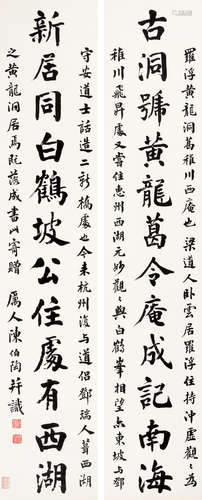 羅浮黃龍洞葛稚川西庵也梁道人卧雲居羅浮住持沖虛觀觀為
古洞號黃龍葛令庵成記南海
稚川飛昇處又嘗住惠州西湖元妙觀觀與白鶴峯相望亦東坡与鄧
守安道士話造二新橋處也今来杭州復与道侶鄧瑞人葺西湖
新居同白鶴坡公住處有西湖
之黃龍洞居焉既落成書以寄贈
厲人陳伯陶并識